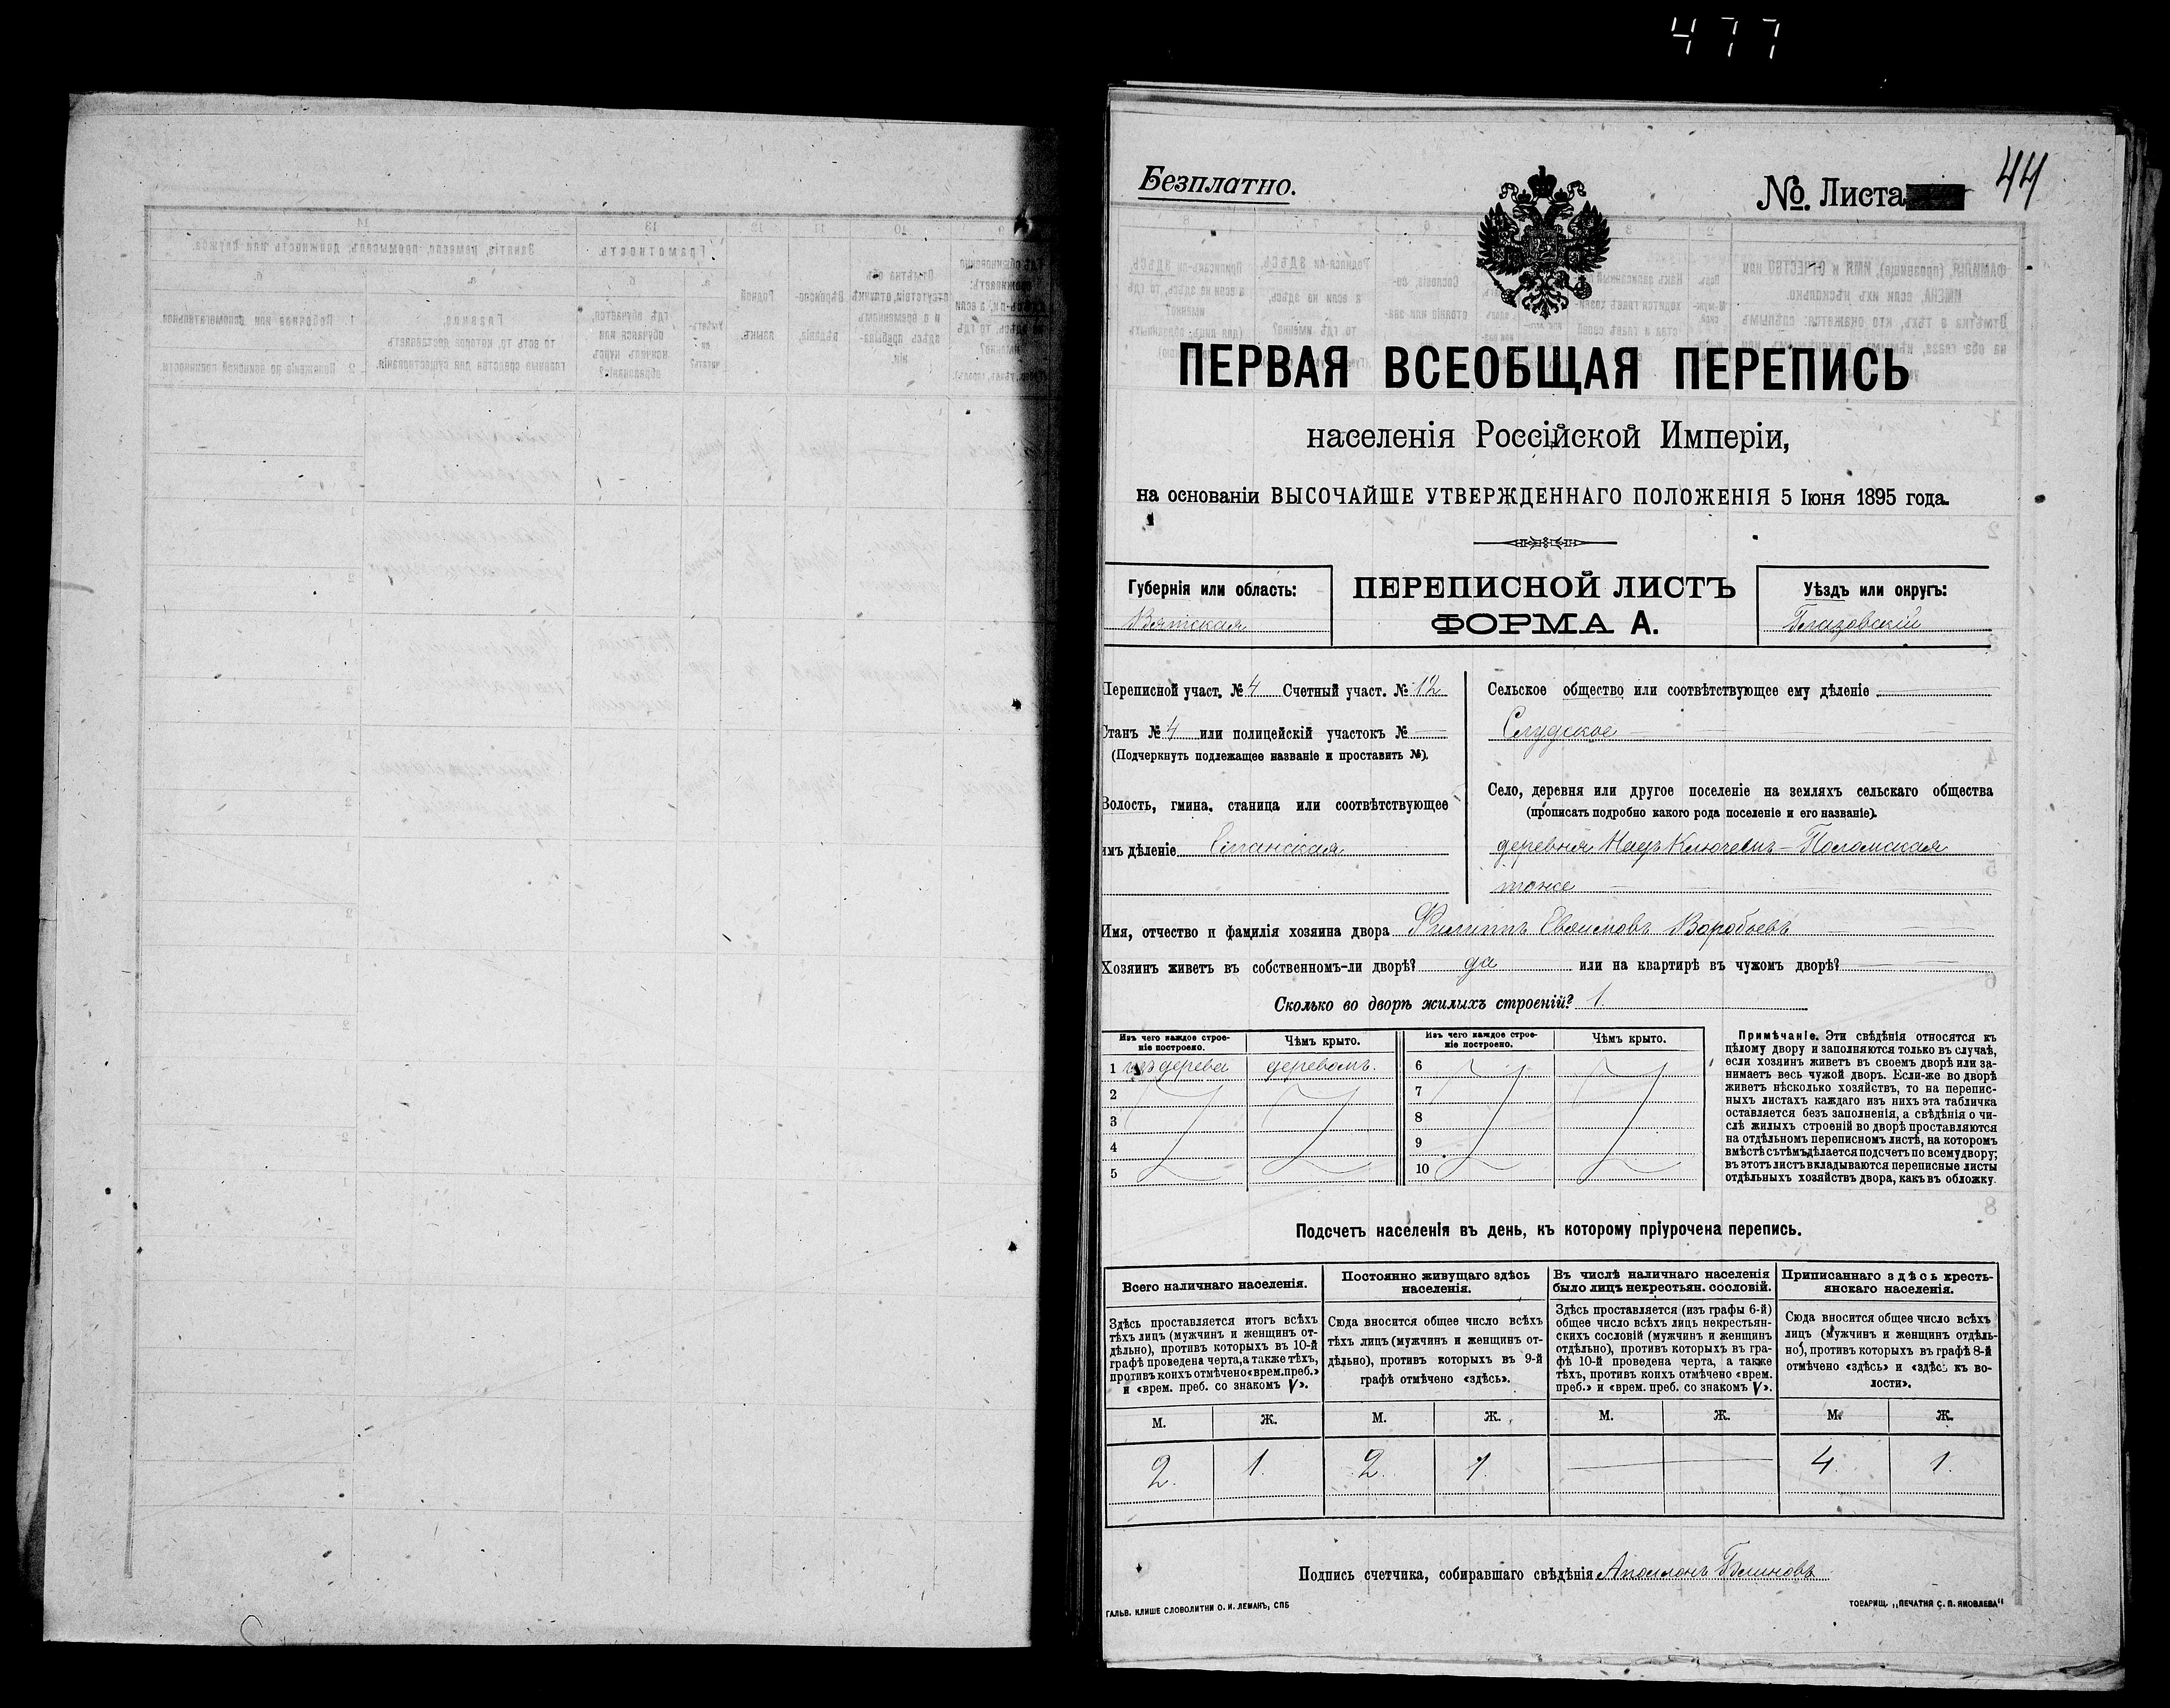 477
Безплатно.
№. Листа 44
ПЕРВАЯ ВСЕОБЩАЯ ПЕРЕПИСЬ
населенія Россійской Имперіи,
на основаніи ВЫСОЧАЙШЕ УТВЕРЖДЕННАГО ПОЛОЖЕНІЯ 5 Іюня 1895 года.
Губернія или область:
Вятская
ПЕРЕПИСНОЙ ЛИСТЪ
ФОРМА А.
Уѣздъ или округъ:
Глазовскій
Переписной участ. № 4 Счетный участ. № 12
Станъ № 4 или полицейскій участокъ № —
(Подчеркнуть подлежащее названіе и проставить №).
Волость, гмина, станица или соотвѣтствующее
имъ дѣленіе
Сельское общество или соотвѣтствующее ему дѣленіе —
Слудское
Село, деревня или другое поселеніе на земляхъ сельскаго общества
(прописать подробно какого рода поселеніе и его названіе).
деревня Надъ Ключемъ-Поломская
тоже
Имя, отчество и фамилія хозяина двора Филиппъ Воробьевъ
Хозяинъ живетъ въ собственномъ-ли дворѣ? да или на квартирѣ въ чужомъ дворѣ? —
Сколько во дворѣ жилыхъ строеній? 1.
Изъ чего каждое строе-
ніе построено.
Чѣмъ крыто.
1 изъ дерева деревомъ.
2
3
4
5
Изъ чего каждое строе-
ніе построено.
Чѣмъ крыто.
6
7
8
9
10
Примѣчаніе. Эти свѣдѣнія относятся къ
цѣлому двору и заполняются только въ случаѣ,
если хозяинъ живетъ въ своемъ дворѣ или за-
нимаетъ весь чужой дворъ. Если-же во дворѣ
живетъ нѣсколько хозяйствъ, то на перепис-
ныхъ листахъ каждаго изъ нихъ эта табличка
оставляется безъ заполненія, а свѣдѣнія о чи-
слѣ жилыхъ строеній во дворѣ проставляются
на отдѣльномъ переписномъ листѣ, на которомъ
вмѣстѣ съ тѣмъ дѣлается подсчетъ по всему двору;
въ этотъ листъ вкладываются переписные листы
отдѣльныхъ хозяйствъ двора, какъ въ обложку.
Подсчетъ населенія въ день, къ которому пріурочена перепись.
Всего наличнаго населенія.
Здѣсь проставляется итогъ всѣхъ
тѣхъ лицъ (мужчинъ и женщинъ от-
дѣльно), противъ которыхъ въ 10-й
графѣ проведена черта, а также тѣхъ,
противъ коихъ отмѣчено «врем. преб.»
и «врем. преб. со знакомъ V».
М. Ж.
2. 1.
Постоянно живущаго здѣсь
населенія.
Сюда вносится общее число всѣхъ
тѣхъ лицъ (мужчинъ и женщинъ от-
дѣльно), противъ которыхъ въ 9-й
графѣ отмѣчено «здѣсь».
М. Ж.
2. 1.
Въ числѣ наличнаго населенія
было лицъ некрестьян. сословій.
Здѣсь проставляется (изъ графы 6-й)
общее число всѣхъ лицъ некрестьян-
скихъ сословій (мужчинъ и женщинъ
отдѣльно), противъ которыхъ въ гра-
фѣ 10-й проведена черта, а также
тѣхъ, противъ коихъ отмѣчено «врем.
преб.» и «врем. преб. со знакомъ V».
М. Ж.
—
Приписаннаго здѣсь кресть-
янскаго населенія.
Сюда вносится общее число всѣхъ
лицъ (мужчинъ и женщинъ отдѣль-
но), противъ которыхъ въ графѣ 8-й
отмѣчено «здѣсь» и «здѣсь къ во-
лости».
М. Ж.
4. 1.
Подпись счетчика, собиравшаго свѣдѣнія Аполлонъ Блиновъ
ГАЛЬВ. КЛИШЕ СЛОВОЛИТНИ О. И. ЛЕМАНЪ, СПБ
ТОВАРИЩ. „ПЕЧАТНЯ С. П. ЯКОВЛЕВА"